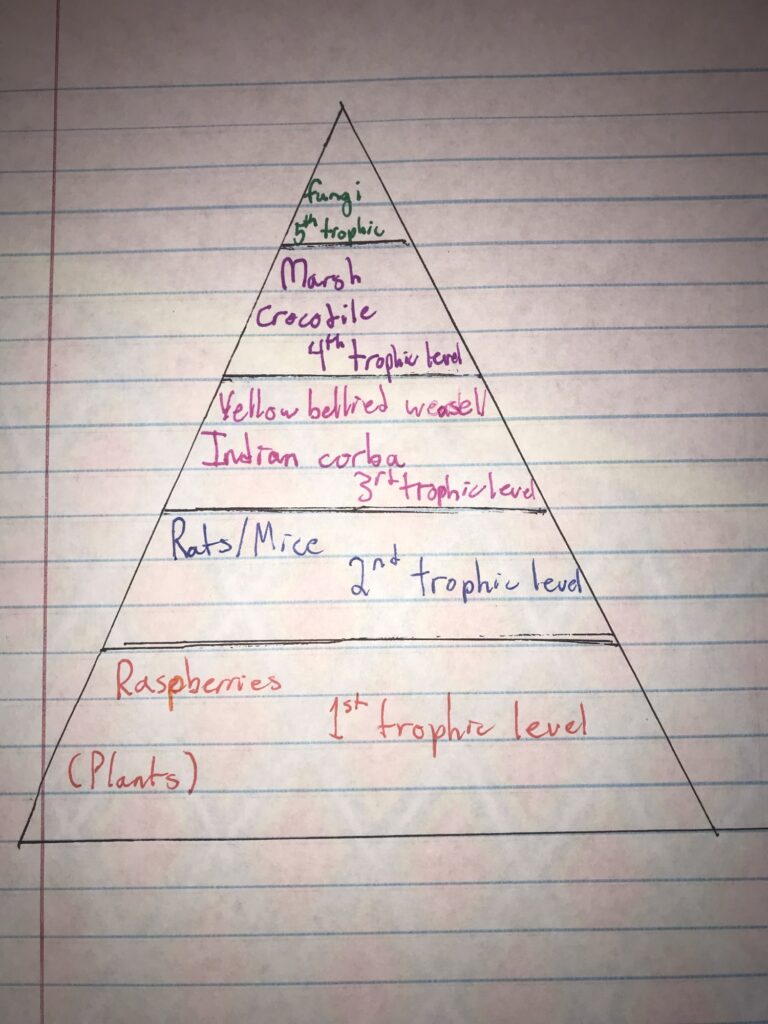 fungi
5th trophic
Marsh
Crocotile
4th trophic level
Yellow bellied weasell
Indian corba
3rd trophic level
Rats/Mice
2nd trophic level
Raspberries
1st trophic level
(Plants)